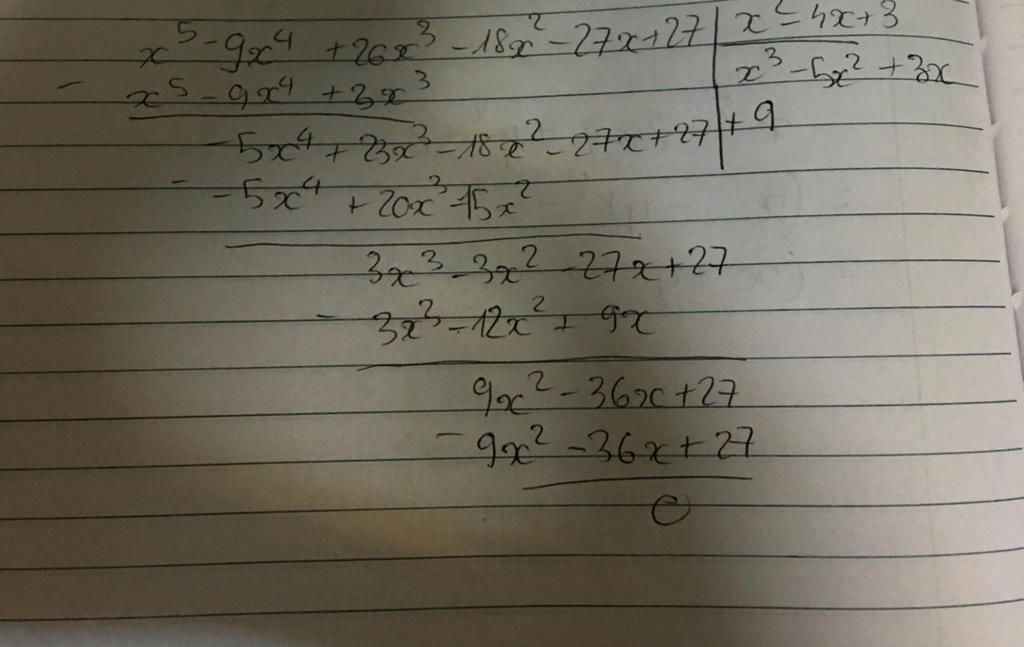 x⁵ - 9x⁴ + 26x³ - 18x² - 27x + 27 | x² - 4x + 3
- x⁵ - 9x⁴ + 3x³ | x³ - 5x² + 3x
- 5x⁴ + 23x³ - 18x² - 27x + 27 | + 9
- - 5x⁴ + 20x³ - 15x²
3x³ - 3x² - 27x + 27
- 3x³ - 12x² + 9x
9x² - 36x + 27
- 9x² - 36x + 27
0